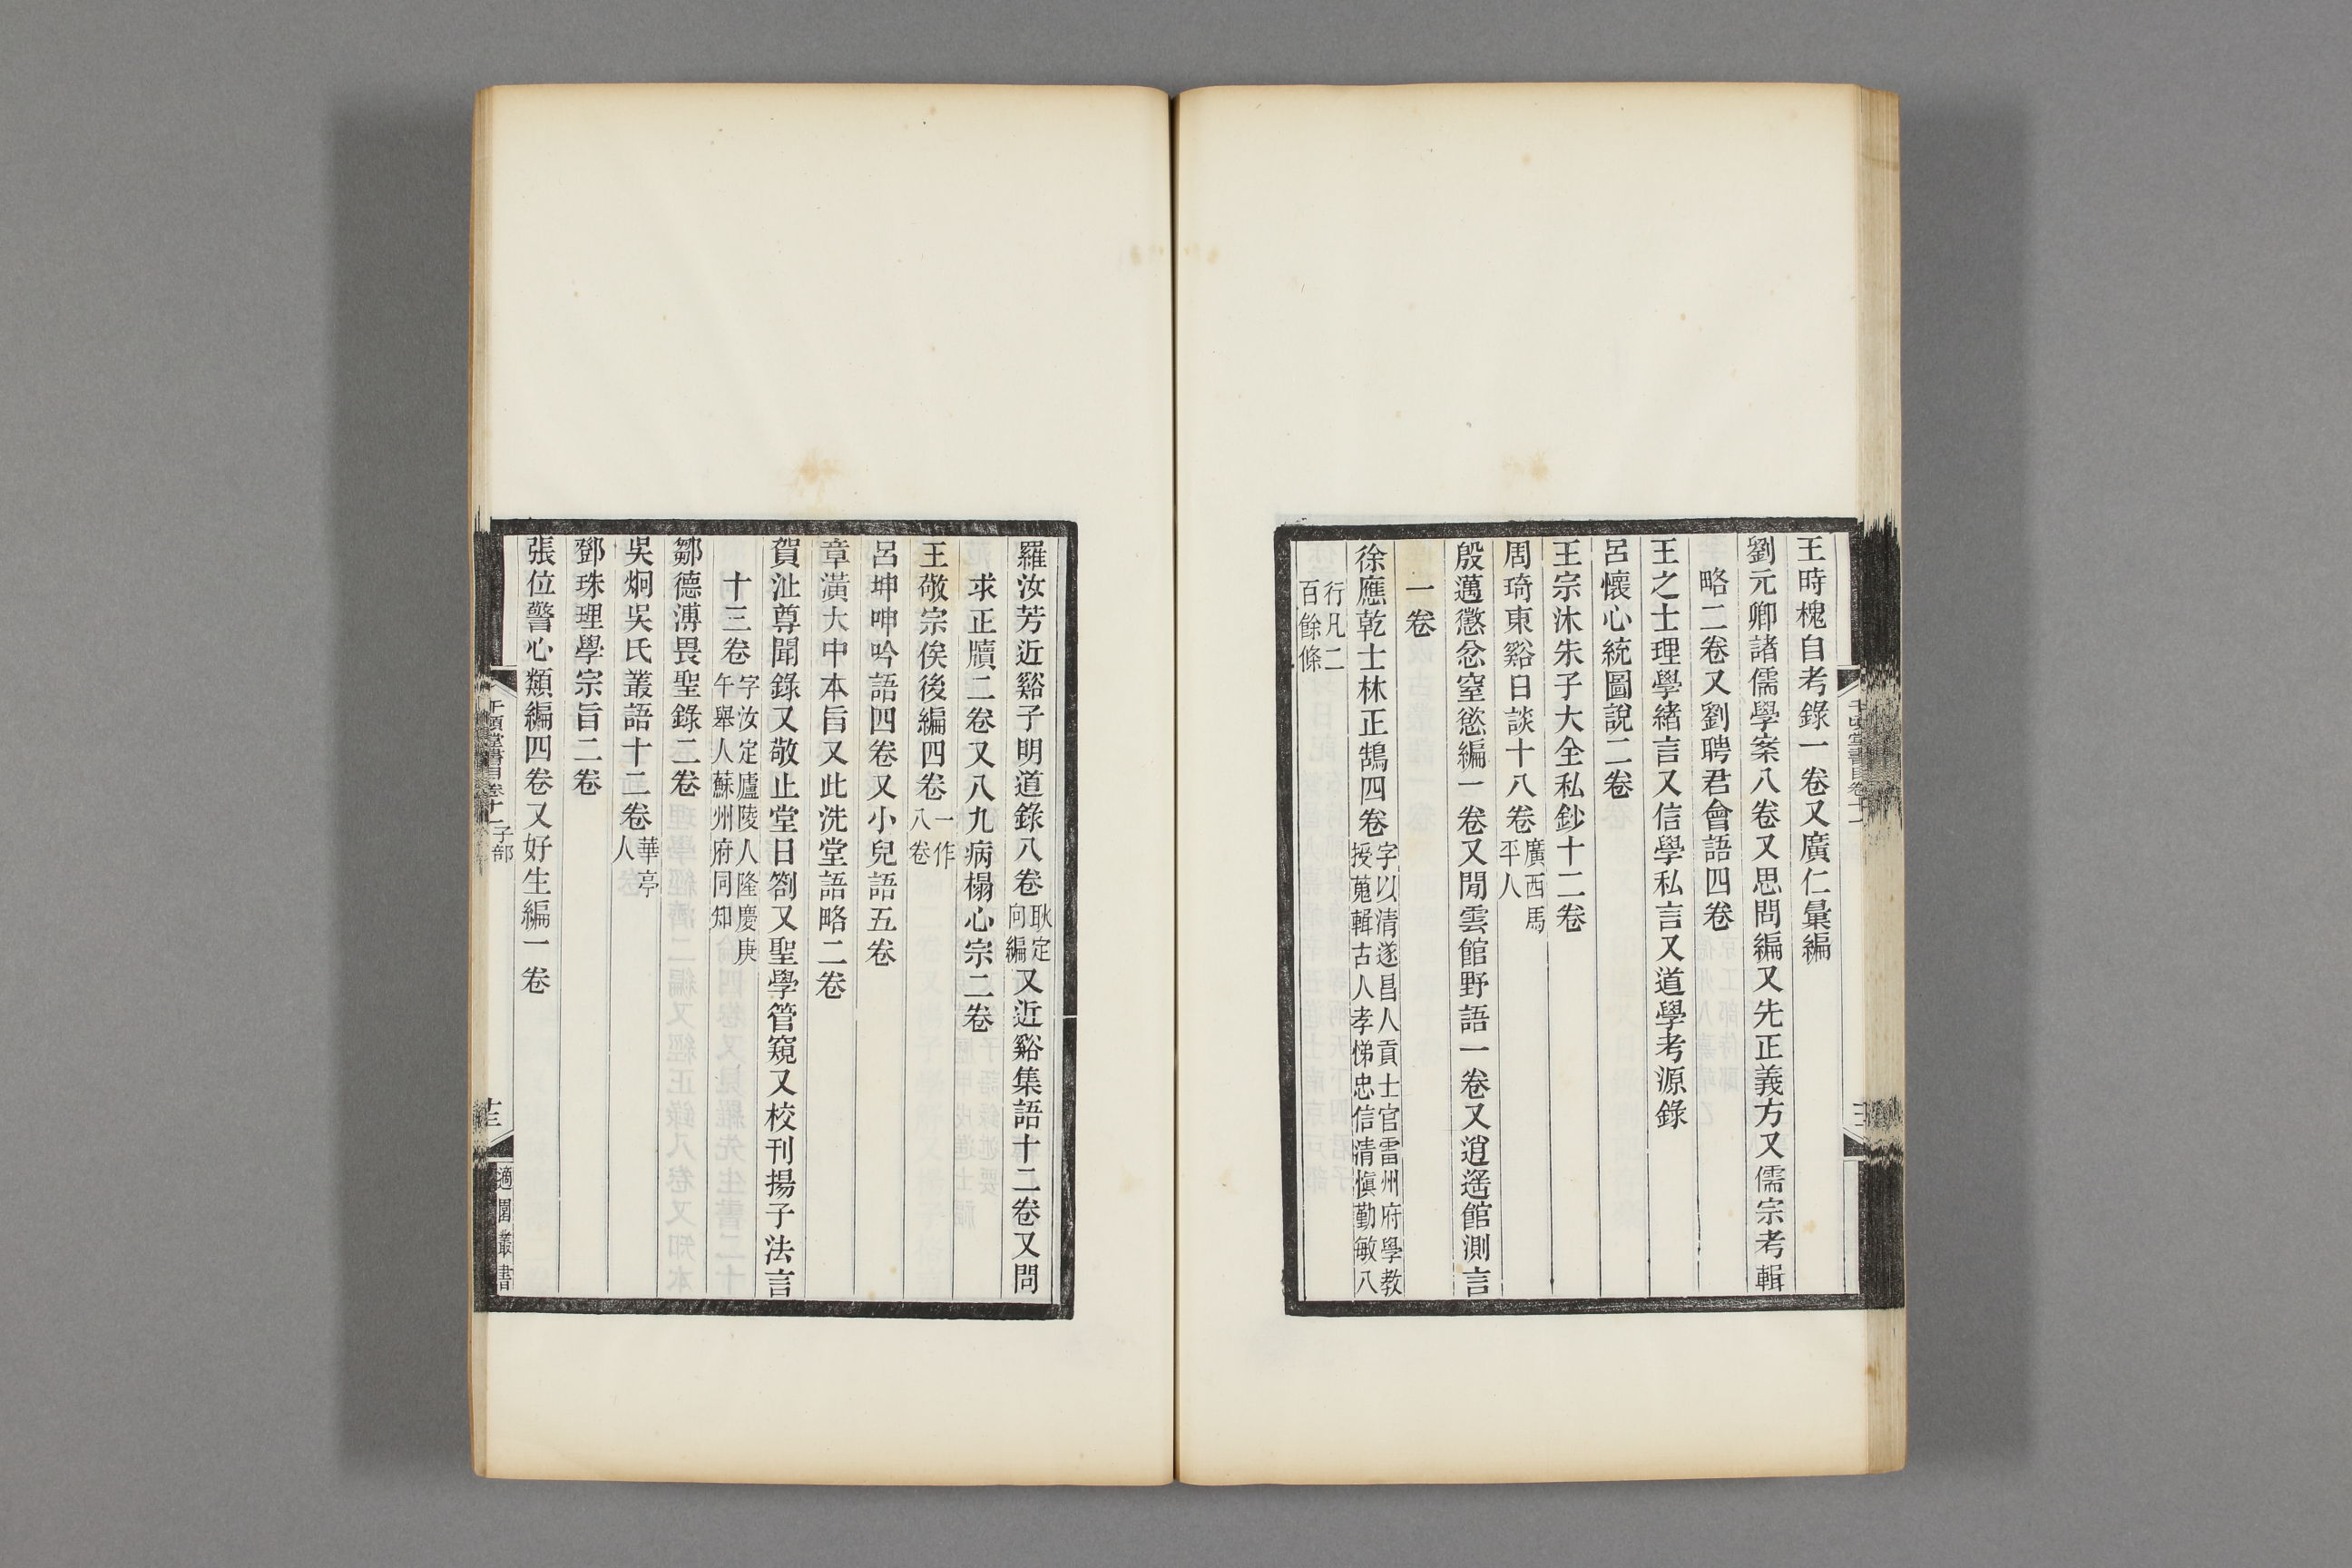 王時槐自考錄一卷又廣仁彙編
劉元卿諸儒學案八卷又思問編又先正義方又儒宗考輯
略二卷又劉聘君會語四卷
王之士理學緒言又信學私言又道學考源錄
呂懷心統圖說二卷
王宗沐朱子大全私鈔十二卷
周琦東谿日談十八卷廣西馬平人
殷邁懲忿窒慾編一卷又閒雲館野語一卷又逍遙館測言
一卷
徐應乾士林正鵠四卷字以清遂昌人貢士官雷州府學教授蒐輯古人孝悌忠信清慎勤敏八
行凡二百餘條
羅汝芳近谿子明道錄八卷耿定向編又近谿集語十二卷又問
求正牘二卷又八九病榻心宗二卷
王敬宗俟後編四卷一作八卷
呂坤呻吟語四卷又小兒語五卷
章潢大中本旨又此洗堂語略二卷
賀沚尊聞錄又敬止堂日劄又聖學管窺又校刊揚子法言
十三卷字汝定廬陵人隆慶庚午舉人蘇州府同知
鄒德溥畏聖錄二卷
吳炯吳氏叢語十二卷華亭人
鄧珠理學宗旨二卷
張位警心類編四卷又好生編一卷
千頃堂書目卷十一 子部
十三
適園叢書